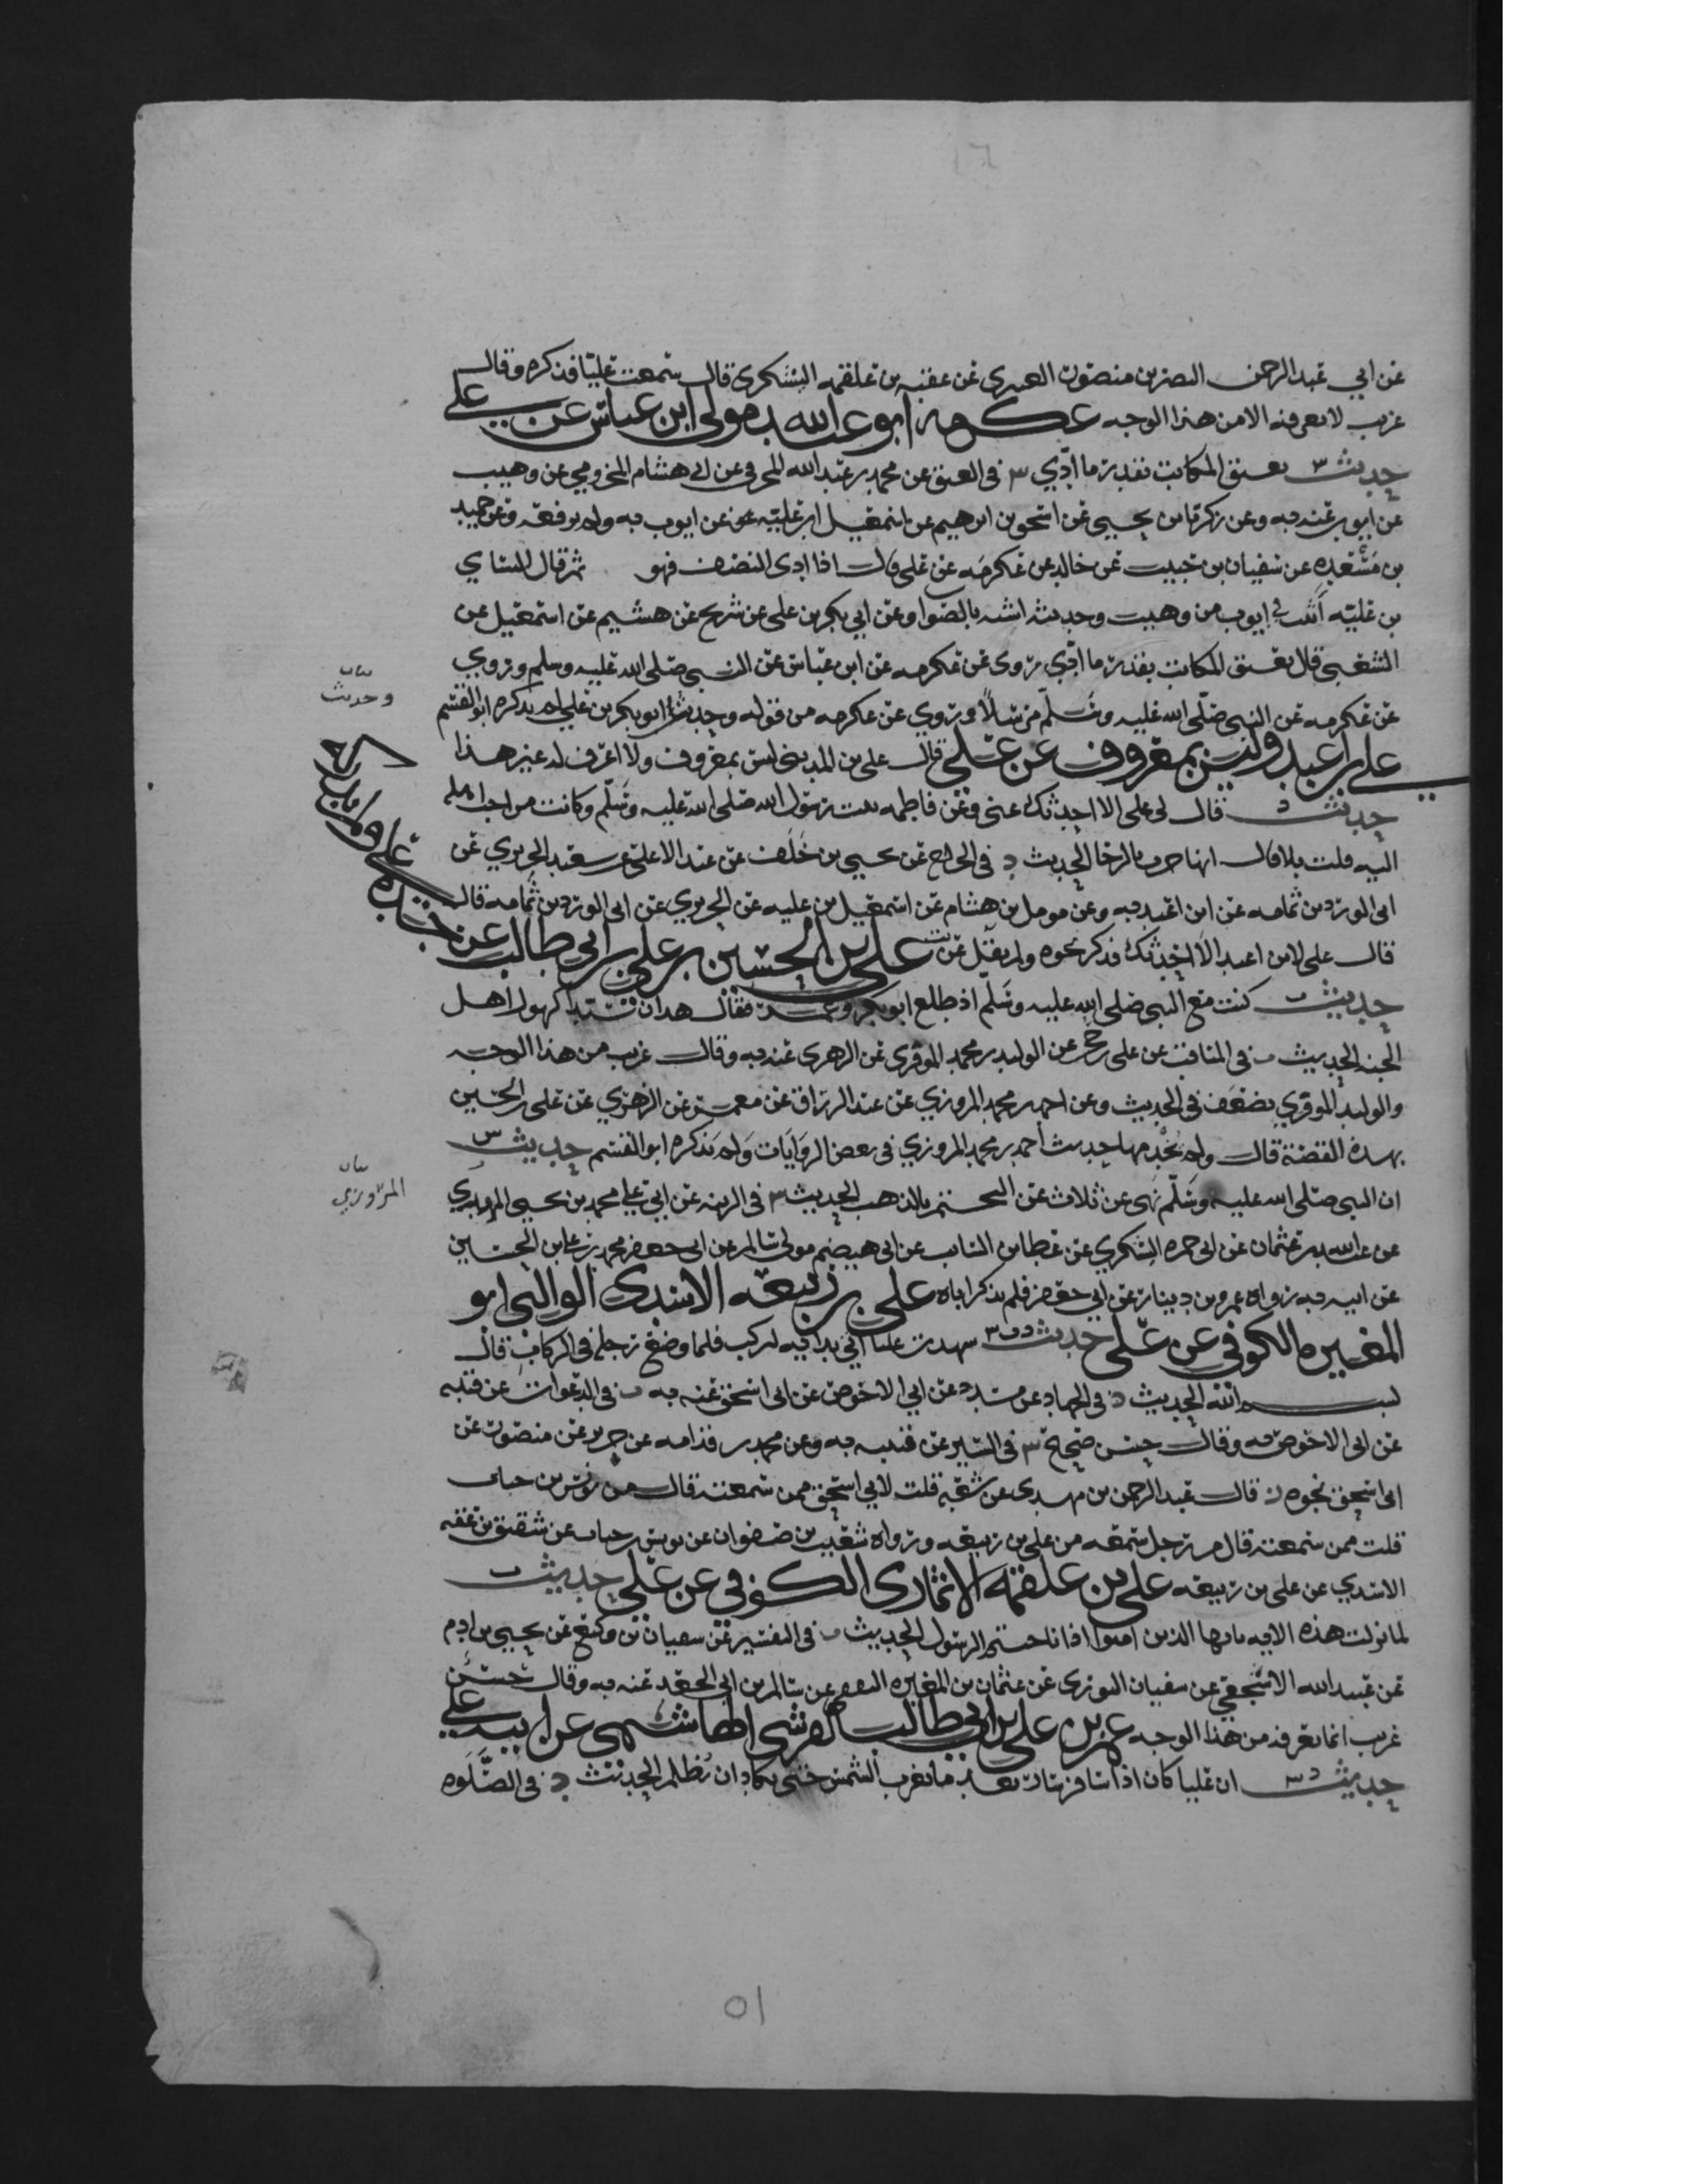 عن ابي عبد الرحمن النضر بن منصور العنزي عن عقبه بن علقمه اليشكري قال سمعت عليا فذكره وقال
غريب لا نعرفه الا من هذا الوجه عكرمه ابو عبد الله مولى ابن عباس عن علي
حديث س يعتق المكاتب بقدر ما ادي س في العتق عن محمد بن عبد الله المخرمي عن ابي هشام المخزومي عن وهيب
عن ايوب عنه به وعن زكريا بن يحيى عن اسحق بن ابرهيم عن اسمعيل ابن عليه عن ايوب به ولم يرفعه وعن حميد
بن مسعده عن سفيان بن حبيب عن خالد عن عكرمه عن علي قال اذا ادى النصف فهو ثم قال النساي
بن عليه اثبت في ايوب من وهيب وحديثه اشبه بالصواب وعن ابي بكر بن علي عن شريح عن هشيم عن اسمعيل عن
الشعبي قال يعتق المكاتب بقدر ما ادي روى عن عكرمه عن ابن عباس عن النبي صلى الله عليه وسلم وروي
عن عكرمه عن النبي صلى الله عليه وسلم مرسلا وروي عن عكرمه من قوله وحديث ابو بكر بن علي لم يذكره ابو القسم
بيان
وحديث
علي بن اعبد وليس بمعروف عن علي قال علي بن المديني ليس بمعروف ولا اعرف له غير هذا
حديث د قال لي علي الا احدثك عني وعن فاطمه بنت رسول الله صلى الله عليه وسلم وكانت من احب اهله
اليه قلت بلى قال انها جرت بالرحا الحديث د في الخراج عن يحيى بن خلف عن عبد الاعلى عن سعيد الجريري عن
ابي الورد بن ثمامه عن ابن اعبد به وعن مومل بن هشام عن اسمعيل بن عليه عن الجريري عن ابي الورد بن ثمامه قال
قال علي لابن اعبد الا احدثك فذكر نحوه ولم يقل عن علي بن الحسين بن علي بن ابي طالب عن
حديث ت كنت مع النبي صلى الله عليه وسلم اذ طلع ابو بكر وعمر فقال هذان سيدا كهول اهل
الجنه الحديث ت في المناقب عن علي بن حجر عن الوليد بن محمد الموقري عن الزهري عنه به وقال غريب من هذا الوجه
والوليد الموقري يضعف في الحديث وعن احمد بن محمد المروزي عن عبد الرزاق عن معمر عن الزهري عن علي بن الحسين
بهذه القصة قال ولم نجد حديث احمد بن محمد المروزي في بعض الروايات ولم يذكره ابو القسم حديث س
ان النبي صلى الله عليه وسلم نهى عن ثلاث عن التختم بالذهب الحديث س في الزينه عن ابي علي محمد بن يحيى
بيان
المروزي
عن عبد الله بن عثمان عن ابي حمزه اليشكري عن عطا بن السايب عن ابي هيضم مولى سالم عن ابي جعفر محمد بن علي بن الحسين
عن ابيه به رواه عمرو بن دينار عن ابي جعفر فلم يذكر اباه علي بن ربيعه الاسدي الوالبي ابو
المغيره الكوفي عن علي حديث د ت س شهدت عليا اتي بدابه ليركب فلما وضع رجله في الركاب قال
بسم الله الحديث د في الجهاد عن مسدد عن ابي الاحوص عن ابي اسحق عنه به ت في الدعوات عن قتيبه
عن ابي الاحوص به وقال حسن صحيح س في السير عن قتيبه به وعن محمد بن قدامه عن جرير عن منصور عن
ابي اسحق نحوه ز قال عبد الرحمن بن مهدي عن شعبه قلت لابي اسحق ممن سمعته قال من يونس بن خباب
قلت ممن سمعته قال من رجل سمعه من علي بن ربيعه ورواه شعيب بن صفوان عن يونس بن خباب عن شقيق بن عقبه
الاسدي عن علي بن ربيعه علي بن علقمه الانماري الكوفي عن علي حديث ت
لما نزلت هذه الايه يا ايها الذين امنوا اذا ناجيتم الرسول الحديث ت في التفسير عن سفيان بن وكيع عن يحيى بن ادم
عن عبيد الله الاشجعي عن سفيان الثوري عن عثمان بن المغيره الثقفي عن سالم بن ابي الجعد عنه به وقال حسن
غريب انما نعرفه من هذا الوجه عمر بن علي بن ابي طالب القرشي الهاشمي عن ابيه علي
حديث د س ان عليا كان اذا سافر سار بعد ما تغرب الشمس حتى يكاد ان تظلم الحديث د في الصلوه